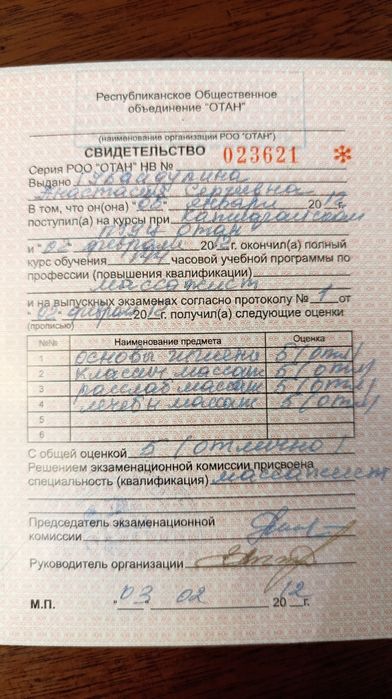 Республиканское Общественное
объединение "ОТАН"
(наименование организации РОО "ОТАН")
СВИДЕТЕЛЬСТВО
Серия РОО "ОТАН" НВ № 023621
Выдано
Анастасия Сергеевна
В том, что он(она) "06" января 2012
поступил(а) на курсы при
ОТАН
и "02" февраля 2012 окончил(а) полный
курс обучения 144 часовой учебной программы по
профессии (повышения квалификации)
массажист
и на выпускных экзаменах согласно протоколу № 1 от
02 февраля 2012 г. получил(а) следующие оценки
(прописью)
№№ Наименование предмета Оценка
основы гигиены 5 (отл)
2 классич массаж 5 (отл)
3 расслаб массаж 5 (отл)
4 лечебн массаж 5 (отл)
5
6
С общей оценкой 5 (отлично)
Решением экзаменационной комиссии присвоена
специальность (квалификация) массажист
Председатель экзаменационной
комиссии
Руководитель организации
М.П. "03" 02 2012 г.